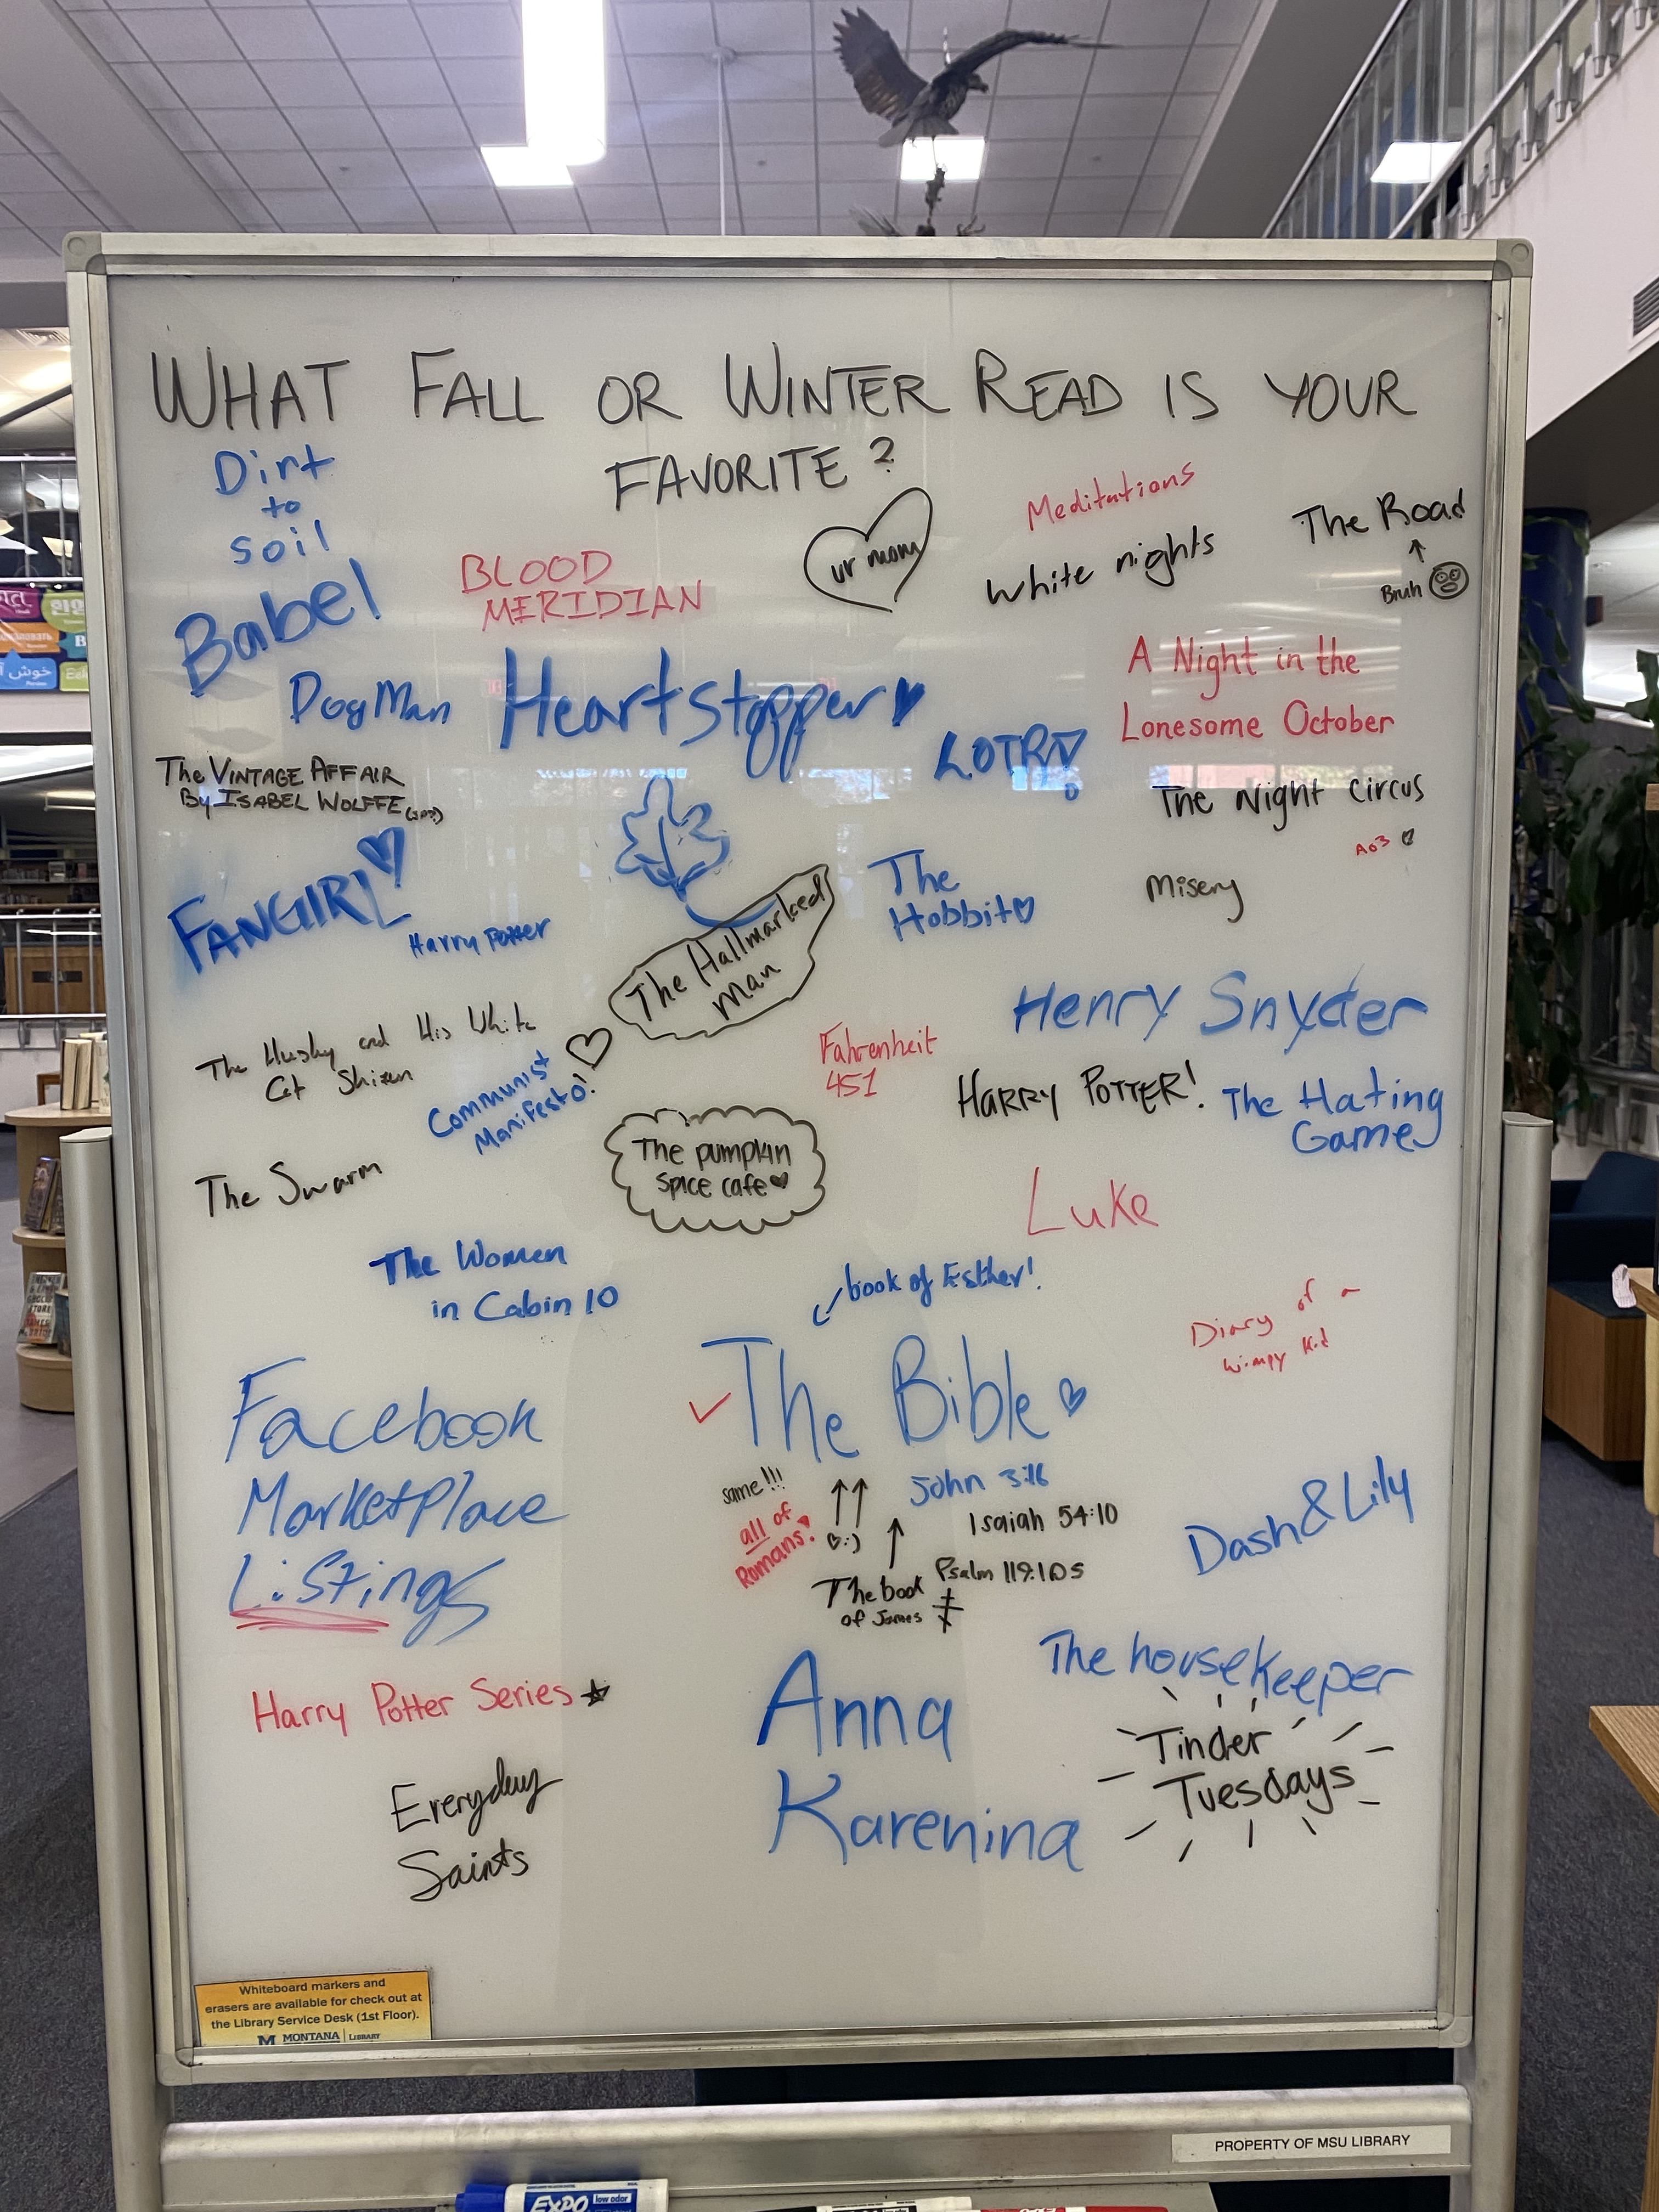 WHAT FALL OR WINTER READ IS YOUR
FAVORITE?
Dirt
to
Soil
BLOOD
MERIDIAN
ur mom
Meditations
White nights
The Road
Bruh
Babel
Dog Man
Heartstopper
LOTR
A Night in the
Lonesome October
The VINTAGE AFFAIR
By ISABEL WOLFFE
The Night Circus
AO3
Misery
FANGIRL
Harry Potter
The Hallmarked
Man
The
Hobbit
Henry Snyder
The Husky and His White
Cat Shizun
Communist
Manifesto!
Fahrenheit
451
HARRY POTTER!
The Hating
Game
The Swarm
The pumpkin
spice cafe
Luke
The Women
in Cabin 10
book of Esther!
Diary of a
Wimpy Kid
Facebook
Marketplace
Listings
The Bible
same!!!
all of
Romans!
:)
John 3:16
Isaiah 54:10
Psalm 119:105
The book
of James
Dash & Lily
The housekeeper
Tinder
Tuesdays
Harry Potter Series
Anna
Karenina
Everyday
Saints
Whiteboard markers and
erasers are available for check out at
the Library Service Desk (1st Floor).
M MONTANA LIBRARY
PROPERTY OF MSU LIBRARY
EXPO low odor